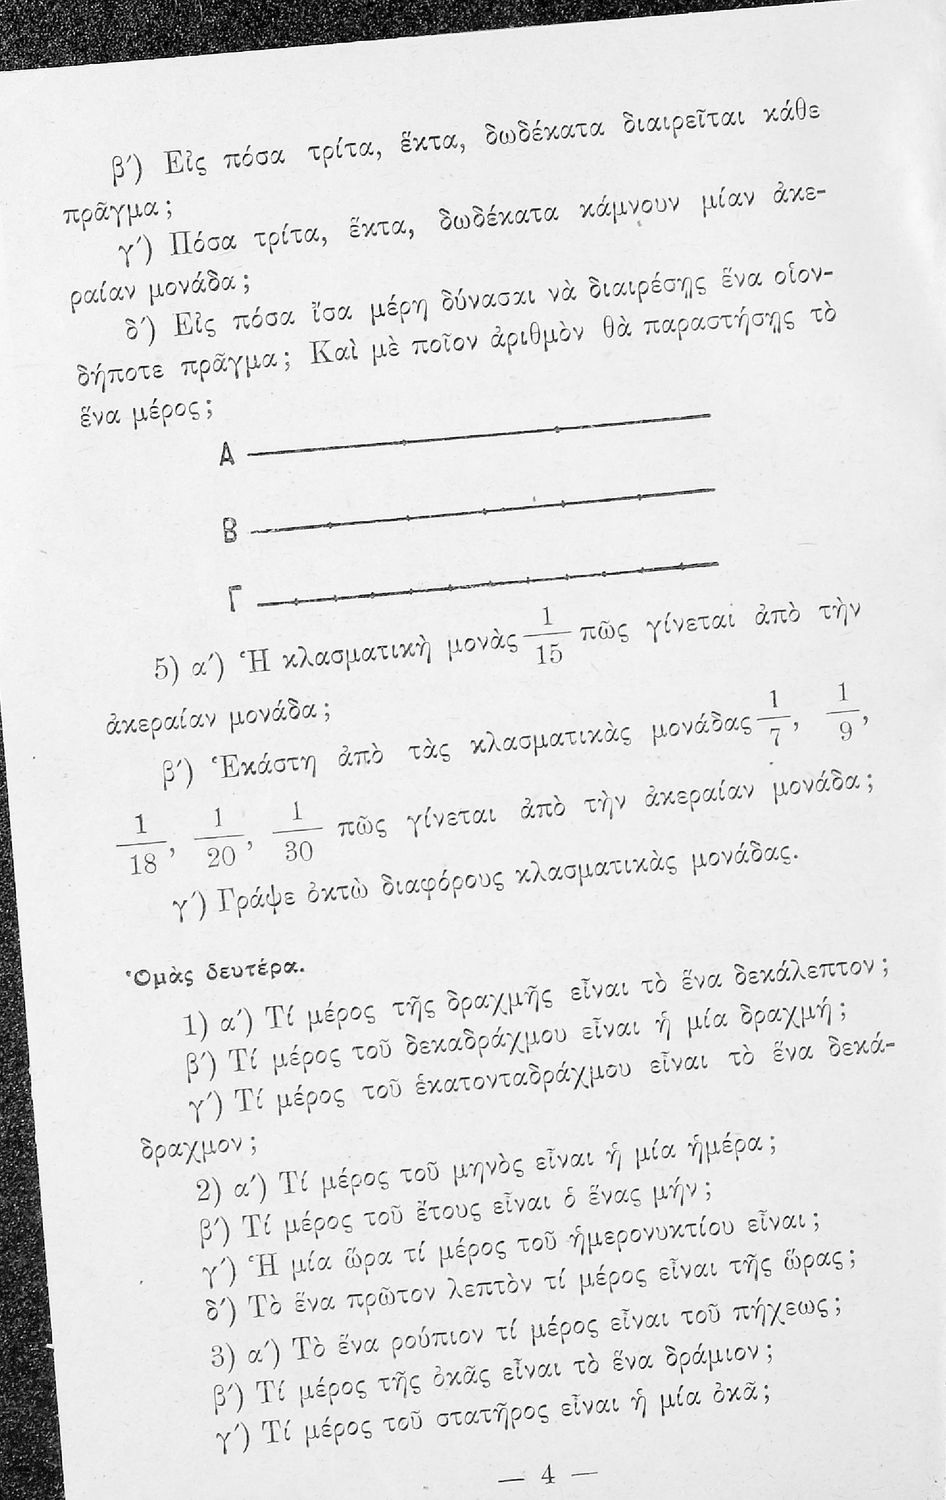 β´) Εἰς πόσα τρίτα, ἕκτα, δωδέκατα διαιρεῖται κάθε
πρᾶγμα;
γ´) Πόσα τρίτα, ἕκτα, δωδέκατα κάμνουν μίαν ἀκε-
ραίαν μονάδα;
δ´) Εἰς πόσα ἴσα μέρη δύνασαι νὰ διαιρέσῃς ἕνα οἱον-
δήποτε πρᾶγμα; Καὶ μὲ ποῖον ἀριθμὸν θὰ παραστήσῃς τὸ
ἕνα μέρος;
Α
Β
Γ
5) α´) Ἡ κλασματικὴ μονὰς 1/15 πῶς γίνεται ἀπὸ τὴν
ἀκεραίαν μονάδα;
β´) Ἑκάστη ἀπὸ τὰς κλασματικὰς μονάδας 1/7, 1/9,
1/18, 1/20, 1/30 πῶς γίνεται ἀπὸ τὴν ἀκεραίαν μονάδα;
γ´) Γράψε ὀκτὼ διαφόρους κλασματικὰς μονάδας.
Ὁμὰς δευτέρα.
1) α´) Τί μέρος τῆς δραχμῆς εἶναι τὸ ἕνα δεκάλεπτον;
β´) Τί μέρος τοῦ δεκαδράχμου εἶναι ἡ μία δραχμή;
γ´) Τί μέρος τοῦ ἑκατονταδράχμου εἶναι τὸ ἕνα δεκά-
δραχμον;
2) α´) Τί μέρος τοῦ μηνὸς εἶναι ἡ μία ἡμέρα;
β´) Τί μέρος τοῦ ἔτους εἶναι ὁ ἕνας μήν;
γ´) Ἡ μία ὥρα τί μέρος τοῦ ἡμερονυκτίου εἶναι;
δ´) Τὸ ἕνα πρῶτον λεπτὸν τί μέρος εἶναι τῆς ὥρας;
3) α´) Τὸ ἕνα ρούπιον τί μέρος εἶναι τοῦ πήχεως;
β´) Τί μέρος τῆς ὀκᾶς εἶναι τὸ ἕνα δράμιον;
γ´) Τί μέρος τοῦ στατῆρος εἶναι ἡ μία ὀκᾶ;
— 4 —